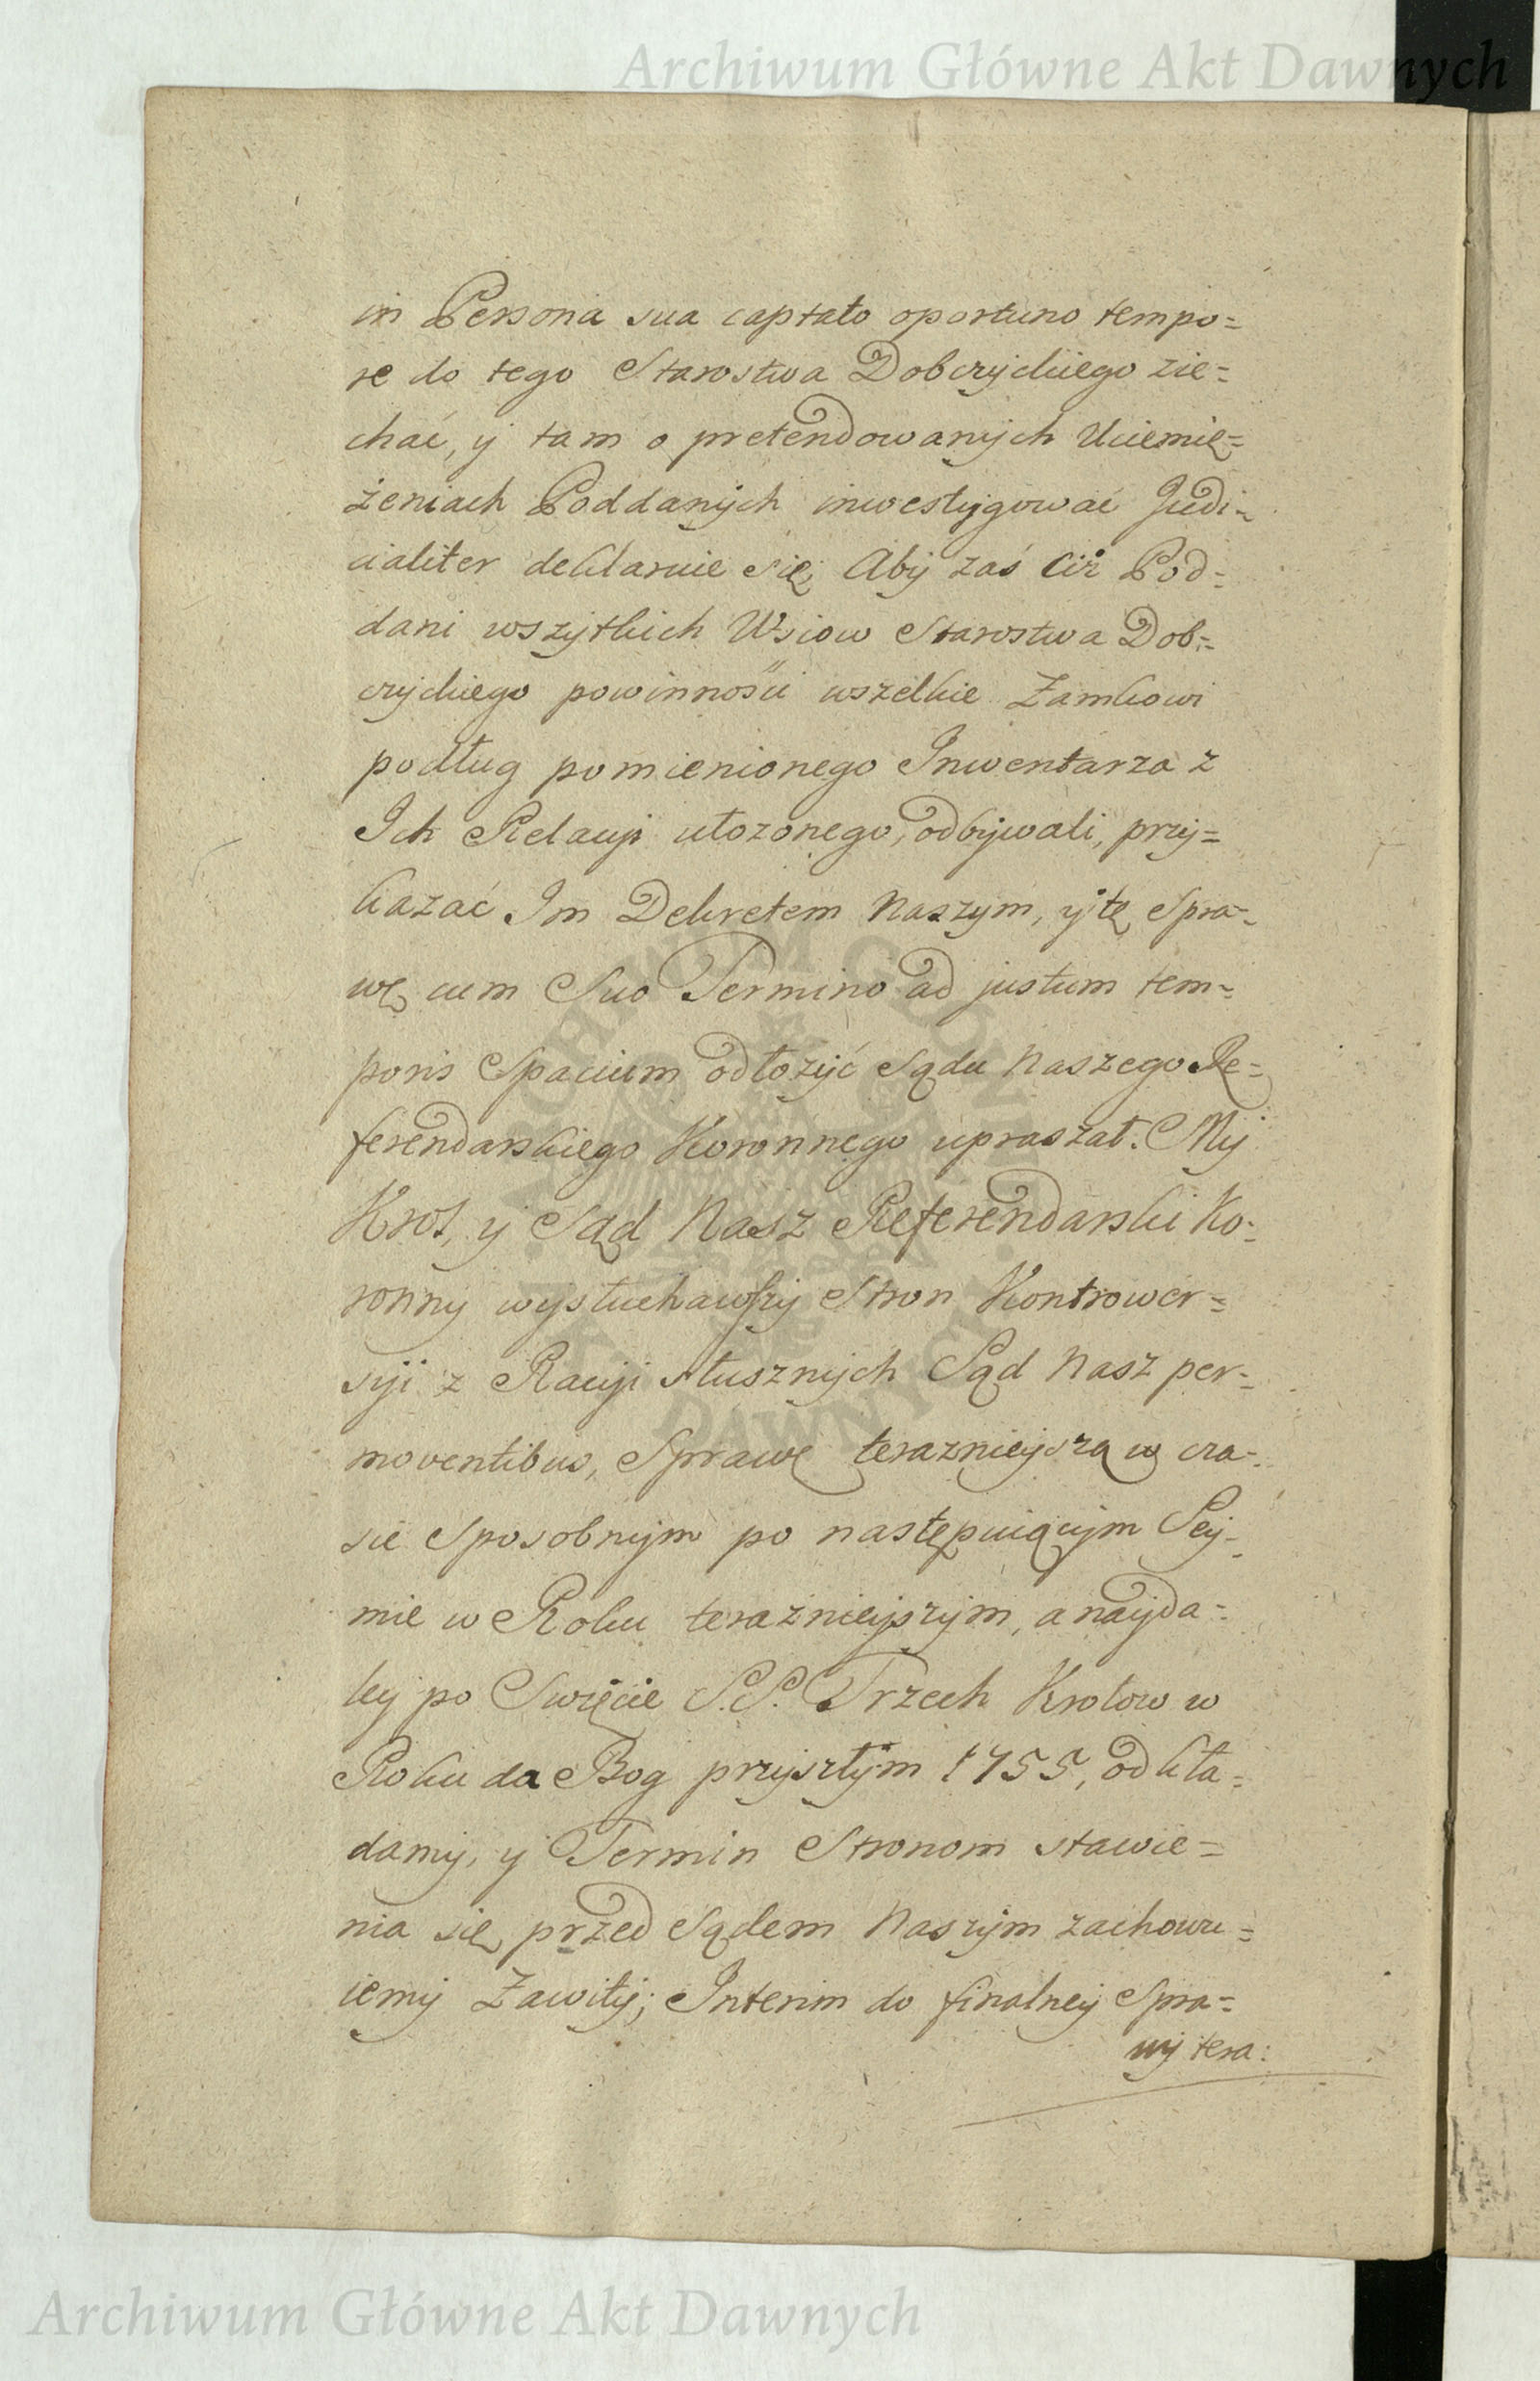 Archiwum Główne Akt Dawnych
in Persona sua captato oportuno tempo=
re do tego Starostwa Dobczyckiego zie=
chać, y tam o pretendowanych Uciemię=
żeniach Poddanych inwestygować Judi=
cialiter deklaruie się; Aby zaś Ciż Pod=
dani wszytkich Wsiow Starostwa Dob=
czyckiego powinności wszelkie Zamkowi
podług pomienionego Inwentarza z
Ich Relacyi ułozonego, odbywali, przy=
kazać Im Dekretem Naszym, y tę Spra=
wę cum Suo Termino ad justum tem=
poris Spacium odłozyć Sądu Naszego Re=
ferendarskiego Koronnego upraszał. My
Krol, y Sąd Nasz Referendarski Ko=
ronny wysłuchawszy Stron Kontrower=
syi z Racyi słusznych Sąd Nasz per=
moventibus, Sprawę teraznieyszą w cza=
sie Sposobnym po następuiącym Sey=
mie w Roku teraznieyszym, a nayda=
ley po Swięcie S.S. Trzech Krolow w
Roku da Bog przyszłym 1755, odkła=
damy, y Termin Stronom stawie=
nia się przed Sądem Naszym zachowu=
iemy Zawity; Interim do finalney Spra=
wy tera:
ARCHIWUM GŁÓWNE AKT DAWNYCH
Archiwum Główne Akt Dawnych